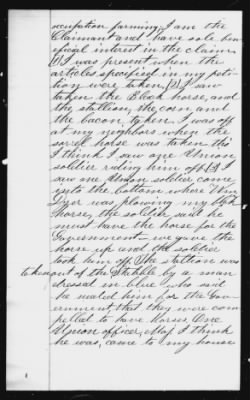 occupation farming. I am the
Claimant and have sole ben-
eficial interest in the claim.
I was present when the
articles specified in my peti-
tion were taken. I saw
taken the Black horse, and
the stallion, the corn and
the bacon, taken. I was off
at my neighbors when the
sorrel horse was taken, tho'
I think I saw one Union
soldier riding him off. I
saw one Union soldier come
into the bottom where
was plowing my
horse, the soldier said he
must have the horse for the
Government - we gave the
horse up and the soldier
took him off. The stallion was
taken out of the stable by a man
dressed in blue who said
he wanted him for the Gov-
ernment, that they were com-
pelled to have horses. One
Union officer, Maj. I think
he was, came to my house